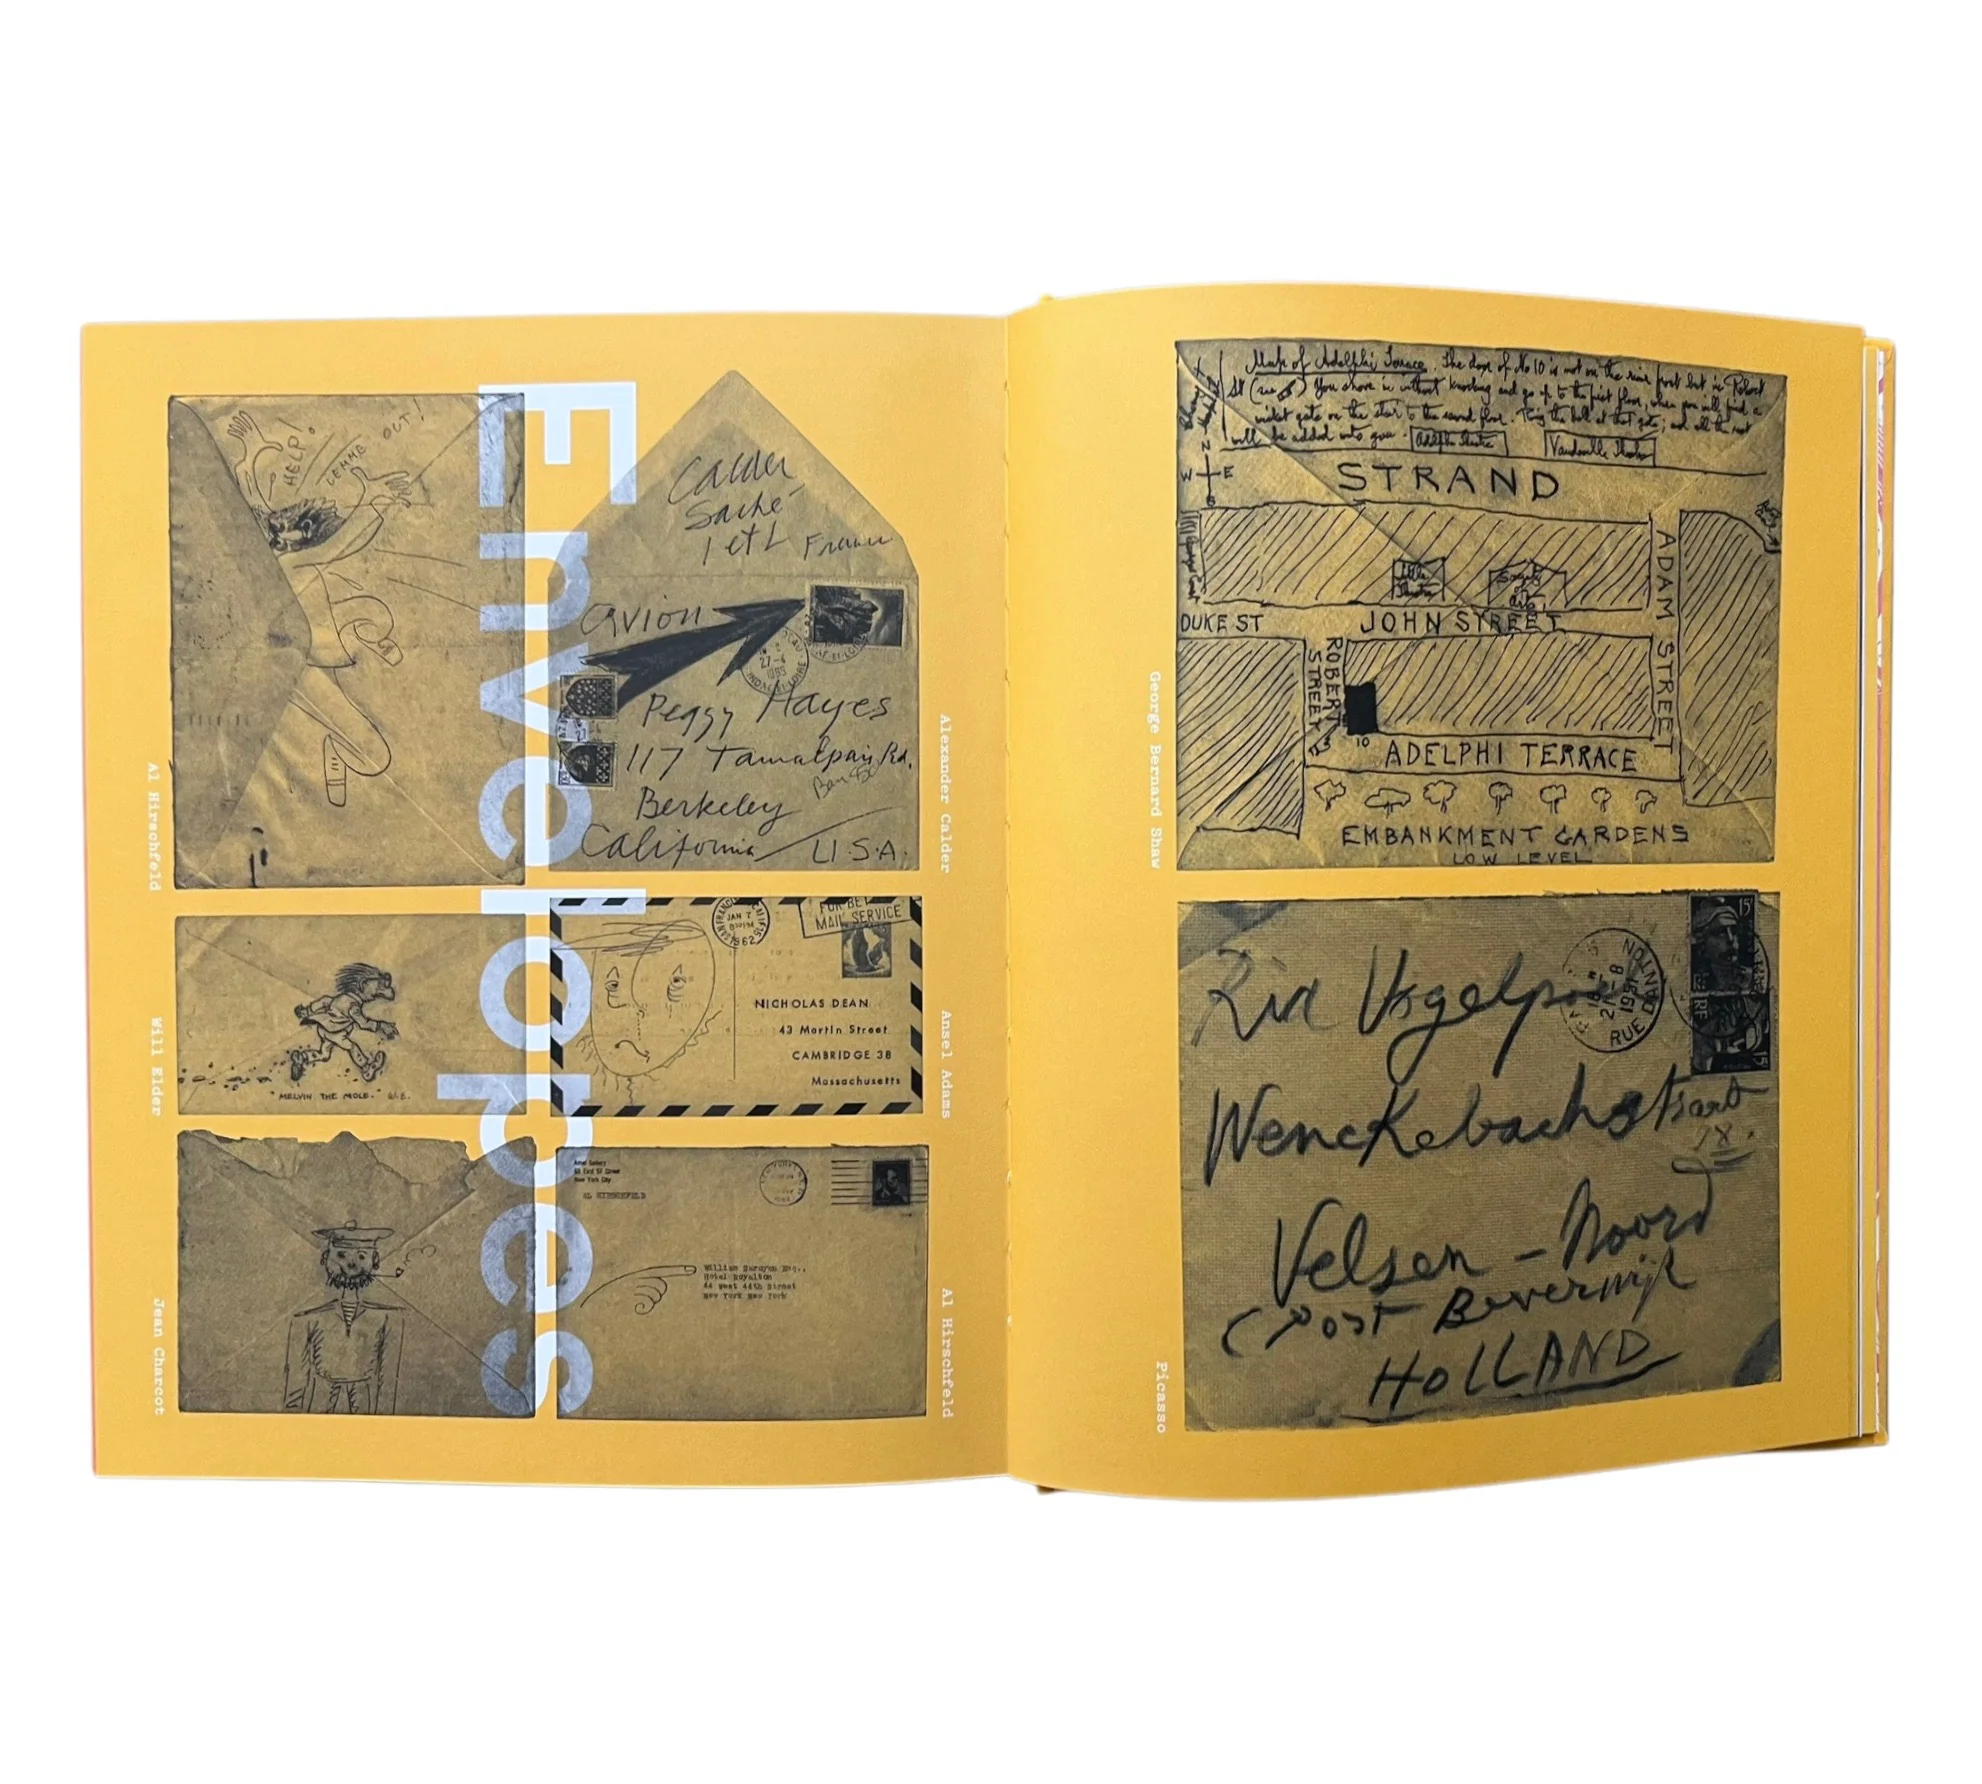 Envelopes
HELP!
LEMME
OUT!
Al Hirschfeld
Calder
Saché
I et L France
avion
27-4
Peggy Hayes
117 Tamalpais Rd.
Berkeley
California U.S.A.
Alexander Calder
"MELVIN THE MOLE." W.E.
Will Elder
JAN 7
1962
MAIL SERVICE
NICHOLAS DEAN
43 Martin Street
CAMBRIDGE 38
Massachusetts
Ansel Adams
Jean Charcot
New York City
AL HIRSCHFELD
William Saroyan Esq.,
Hotel Royalton
44 West 44th Street
New York New York
Al Hirschfeld
Map of Adelphi Terrace. The door of No 10 is not on the river front but in Robert
St (see ) You shove in without knocking and go up to the first floor, when you will find a
wicket gate on the stair to the second floor. Ring the bell at that gate; and all the rest
will be added unto you. Adelphi Theatre Vaudeville Theatre
N
W E
S
STRAND
Little
Theatre
Society
of
Arts
DUKE ST JOHN STREET
ADAM STREET
ROBERT
STREET
10
ADELPHI TERRACE
EMBANKMENT GARDENS
LOW LEVEL
George Bernard Shaw
15F
18H
21-8
1951
RUE DANTON
RF
Wenckebachstraat
18.
Velsen - Noord
(Post Beverwijk
HOLLAND
Picasso